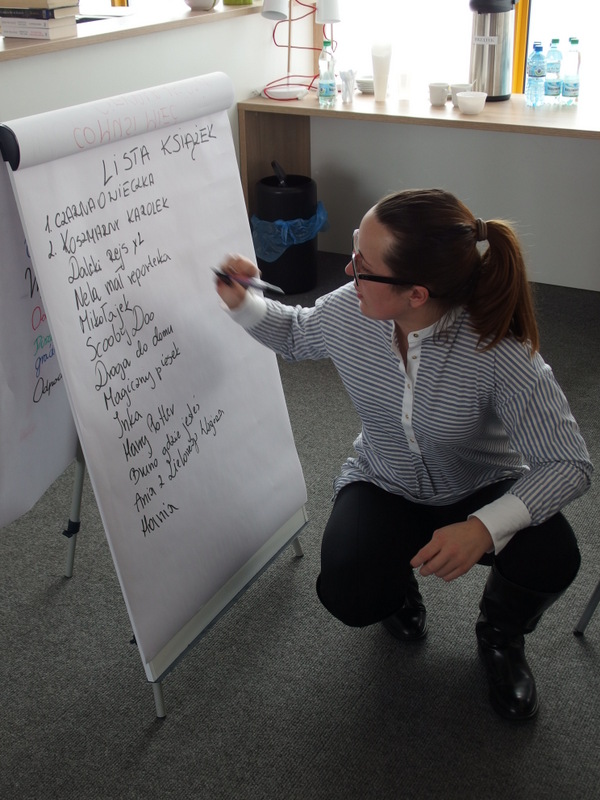 LISTA KSIĄŻEK
1. CZARNA OWIECZKA
2. KOSZMARNY KAROLEK
Daleki rejs XL
Nela mał reporterka
Mikołajek
Scooby Doo
Droga do domu
Magiczny piesek
Inka
Harry Potter
Bruno gdzie jesteś
Ania z Zielonego Wzgórza
Hania